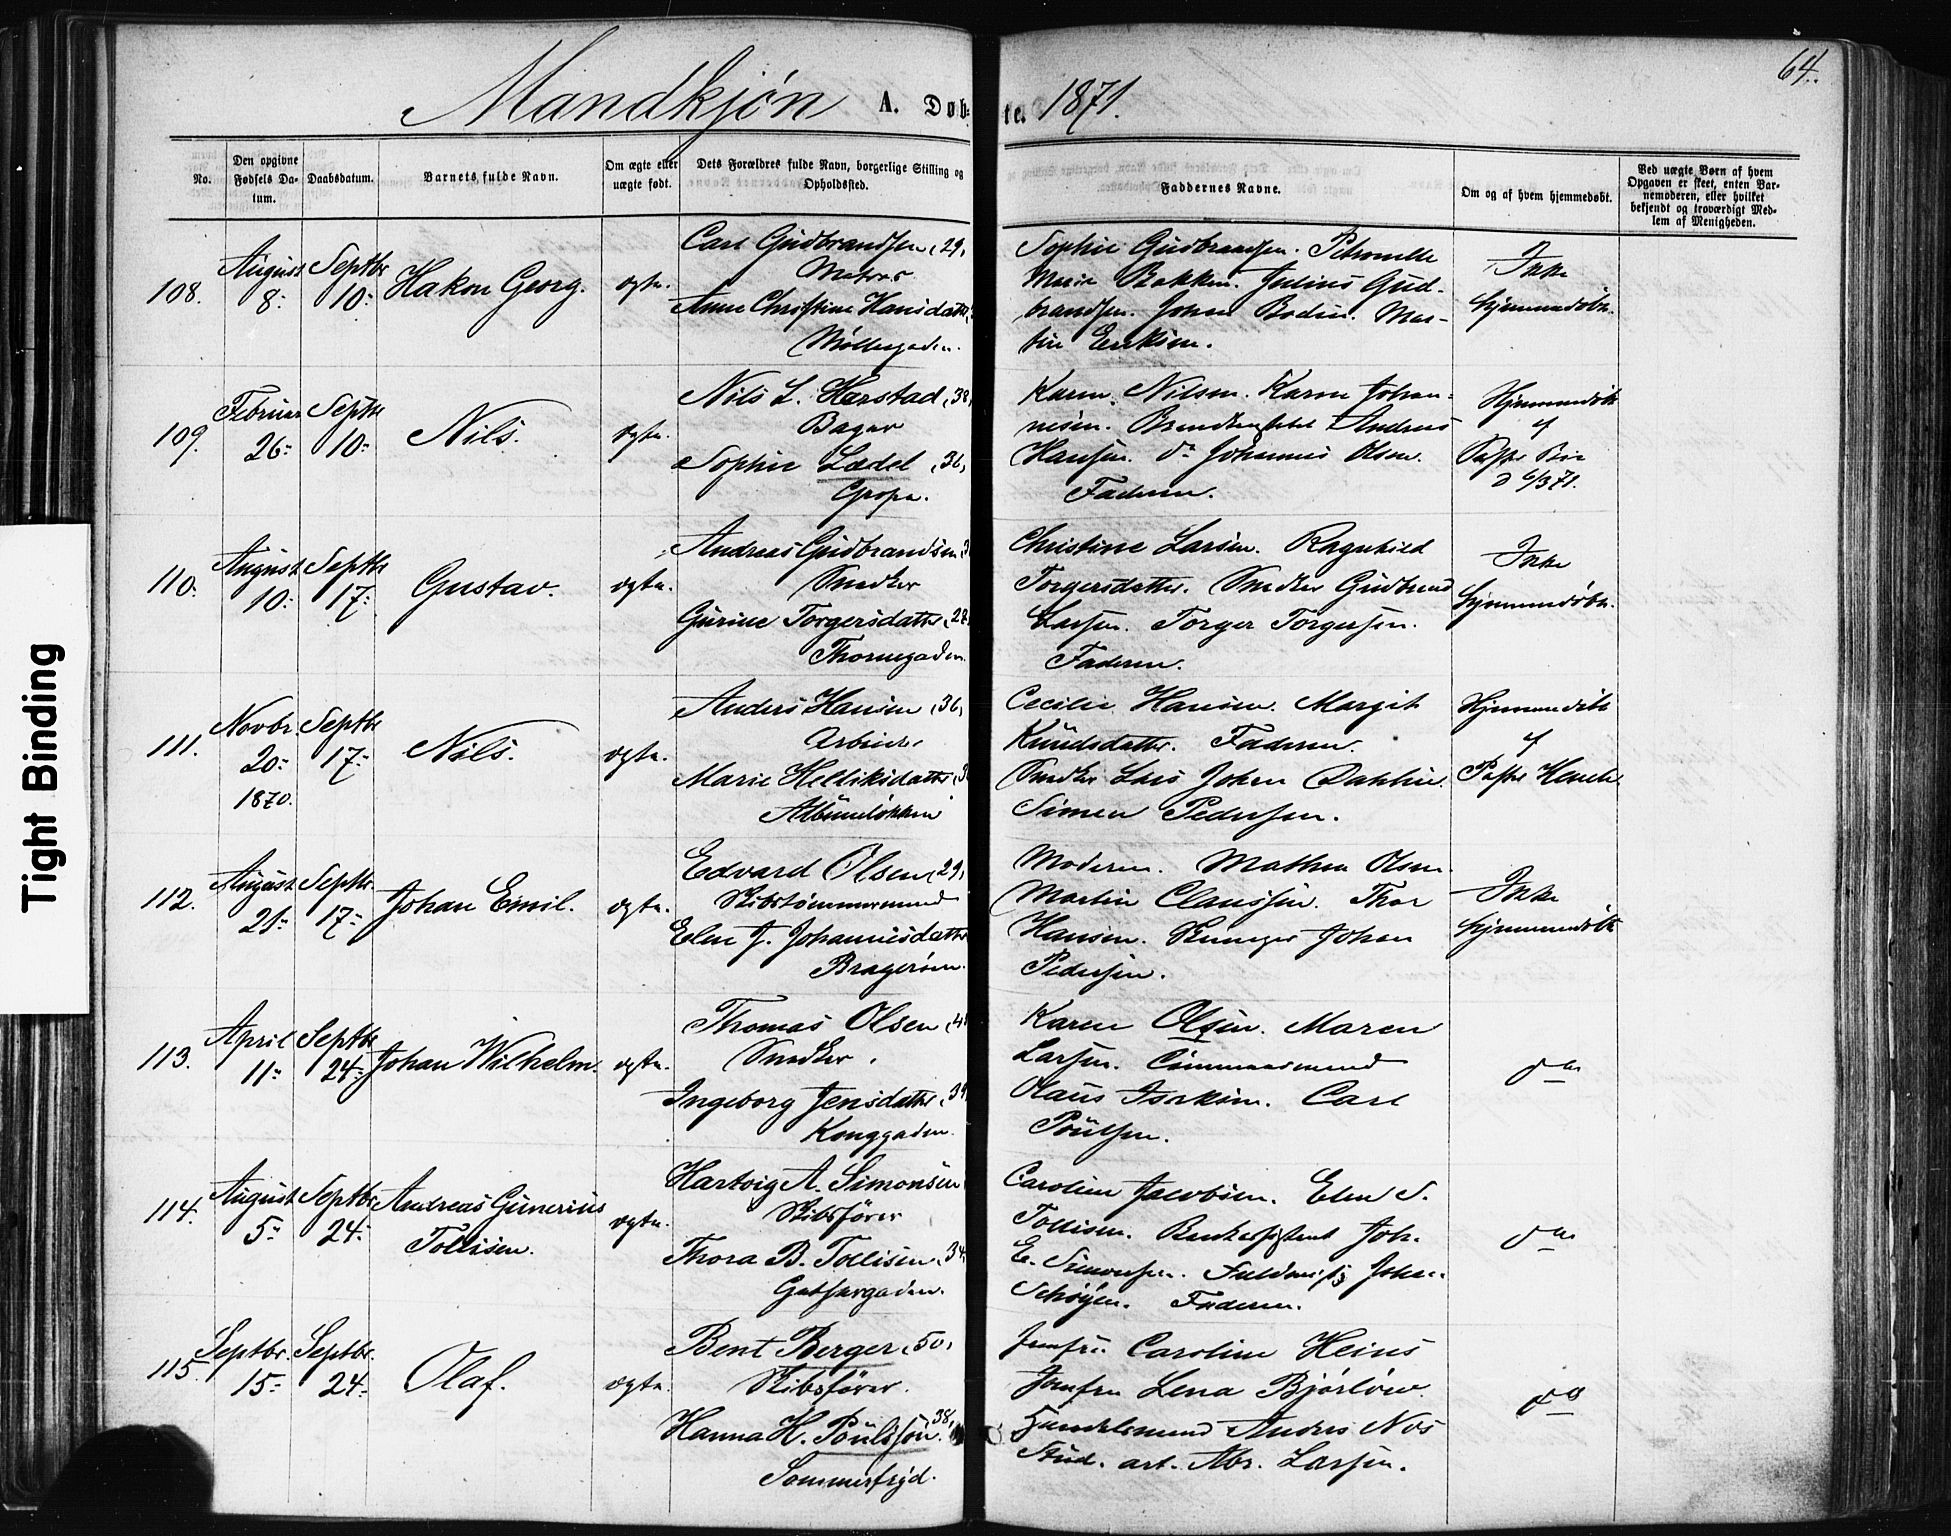 64.
Mandkjøn A. Døb-
te. 1871.
Tight Binding
No.
Den opgivne Fødsels Da-
tum.
Daabsdatum.
Barnets fulde Navn.
Om ægte eller
uægte født.
Dets Forældres fulde Navn, borgerlige Stilling og
Opholdssted.
Faddernes Navne.
Om og af hvem hjemmedøbt.
Ved uægte Børn af hvem
Opgaven er skeet, enten Bar-
nemoderen, eller hvilket
bekjendt og troværdigt Med-
lem af Menigheden.
108.
August
8=
Septbr
10=
Hakon Georg.
ægte.
Carl Gudbrandsen (29)
Matros
Anne Christine Hansdatter
Møllergaden.
Sophie Gudbrandsen. Petronelle
Marie Bakken. Julius Gud-
brandsen. Johan Bodin. Mar-
tin Eriksen.
Ikke
hjemmedøbt.
109.
Februar
26=
Septbr
10=
Nils.
ægte.
Nils L. Harstad (38)
Bager
Sophie Lædel (36)
Gropa.
Karen Nilsen. Karen Johan-
nisen. Andreas
Hansen. do Johannes Olsen.
Faderen.
Hjemmedøbt
af
d 6/3 71.
110.
August
10=
Septbr
17=
Gustav.
ægte.
Andreas Gudbrandsen
Snedker
Gurine Torgersdatter (28)
Thornegaden.
Christine Larsen. Ragnhild
Torgersdatter. Snedker Gudbrand
Larsen. Torger Torgersen.
Faderen.
Ikke
hjemmedøbt.
111.
Novbr.
20=
1870.
Septbr
17=
Nils.
ægte.
Anders Hansen (36)
Arbeider
Marie Helliksdatter
Albumløkken
Cecilie Hansen. Margit
Knudsdatter. Faderen.
Snedker Lars Johan Dahlin.
Simen Pedersen.
Hjemmedøbt
af
Pastor Hauch
112.
August
21=
Septbr.
17=
Johan Emil.
ægte.
Edvard Olsen (29)
Skibstømmermand
Elen J. Johannesdatter
Bragerøen.
Moderen. Mathea Olsen.
Martin Claussen. Thor
Hansen. Johan
Pedersen.
Ikke
hjemmedøbt
113.
April
11=
Septbr
24=
Johan Wilhelm.
ægte.
Thomas Olsen
Snedker.
Ingeborg Jensdatter (39)
Konggaden.
Karen Olsen. Maren
Larsen. Tømmermand
Olaus Isaksen. Carl
Poulsen.
do
114.
August
5=
Septbr
24=
Andreas Gunerius
Tollisen.
ægte.
Hartvig A. Simonsen
Skibsfører
Thora B. Tollisen (34)
Gethsegaden.
Caroline Jacobsen. Elen S.
Tollisen. Joh.
E. Simonsen. Johan
Schøyen. Faderen.
do
115.
Septbr.
15=
Septbr.
24=
Olaf.
ægte.
Bent Berger (50)
Skibsfører.
Hanna H. Poulsson. 38,
Sommerfryd.
Jomfru Caroline Heins
Jomfru Lena Bjørløw.
Handelsmand Anders Nøs
Stud. art. Abr. Larsen.
do